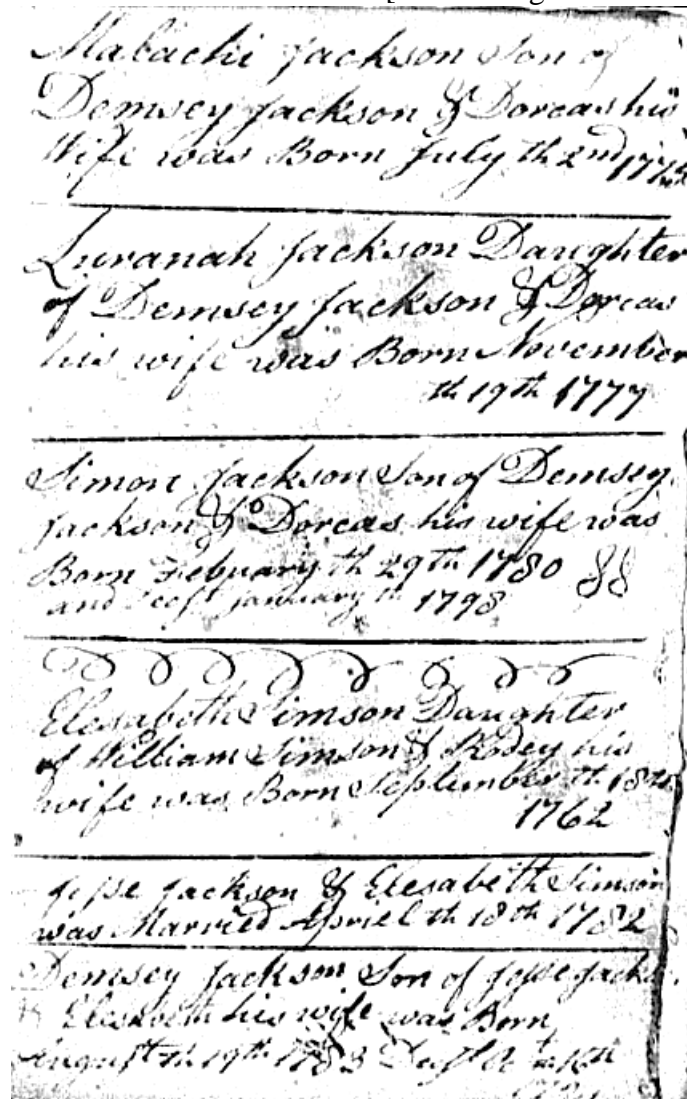 Malachi Jackson Son of
Demsey Jackson & Dorcas his
Wife was Born July th 2nd
Luranah Jackson Daughter
of Demsey Jackson & Dorcas
his wife was Born November
th 19th 1777
Simon Jackson Son of Demsey
Jackson & Dorcas his wife was
Born Febuary th 29th 1780
and January th 1798
Elesabeth Simson Daughter
of William Simson & Rodey his
wife was Born September th 18th
1762
Jesse Jackson & Elesabeth Simson
was Married Apriel th 18th 1782
Demsey Jackson Son of Jesse
& Elesabeth his wife was Born
August th 19th 1783